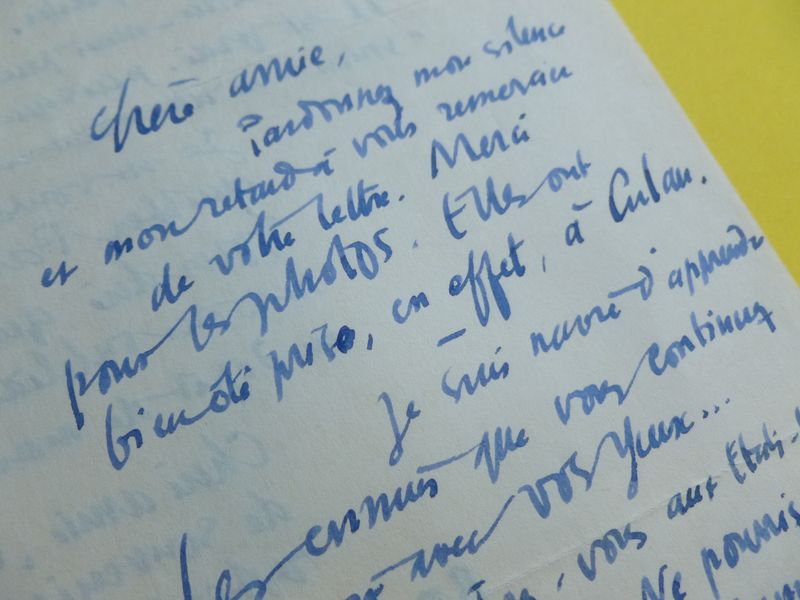 Chère amie,
Pardonnez mon silence
et mon retard à vous remercier
de votre lettre. Merci
pour les photos. Elles ont
bien été prises, en effet, à Culan.
Je suis navré d'apprendre
les ennuis que vous continuez
avec vos yeux...
, vous aux Etats-
Ne pouvis